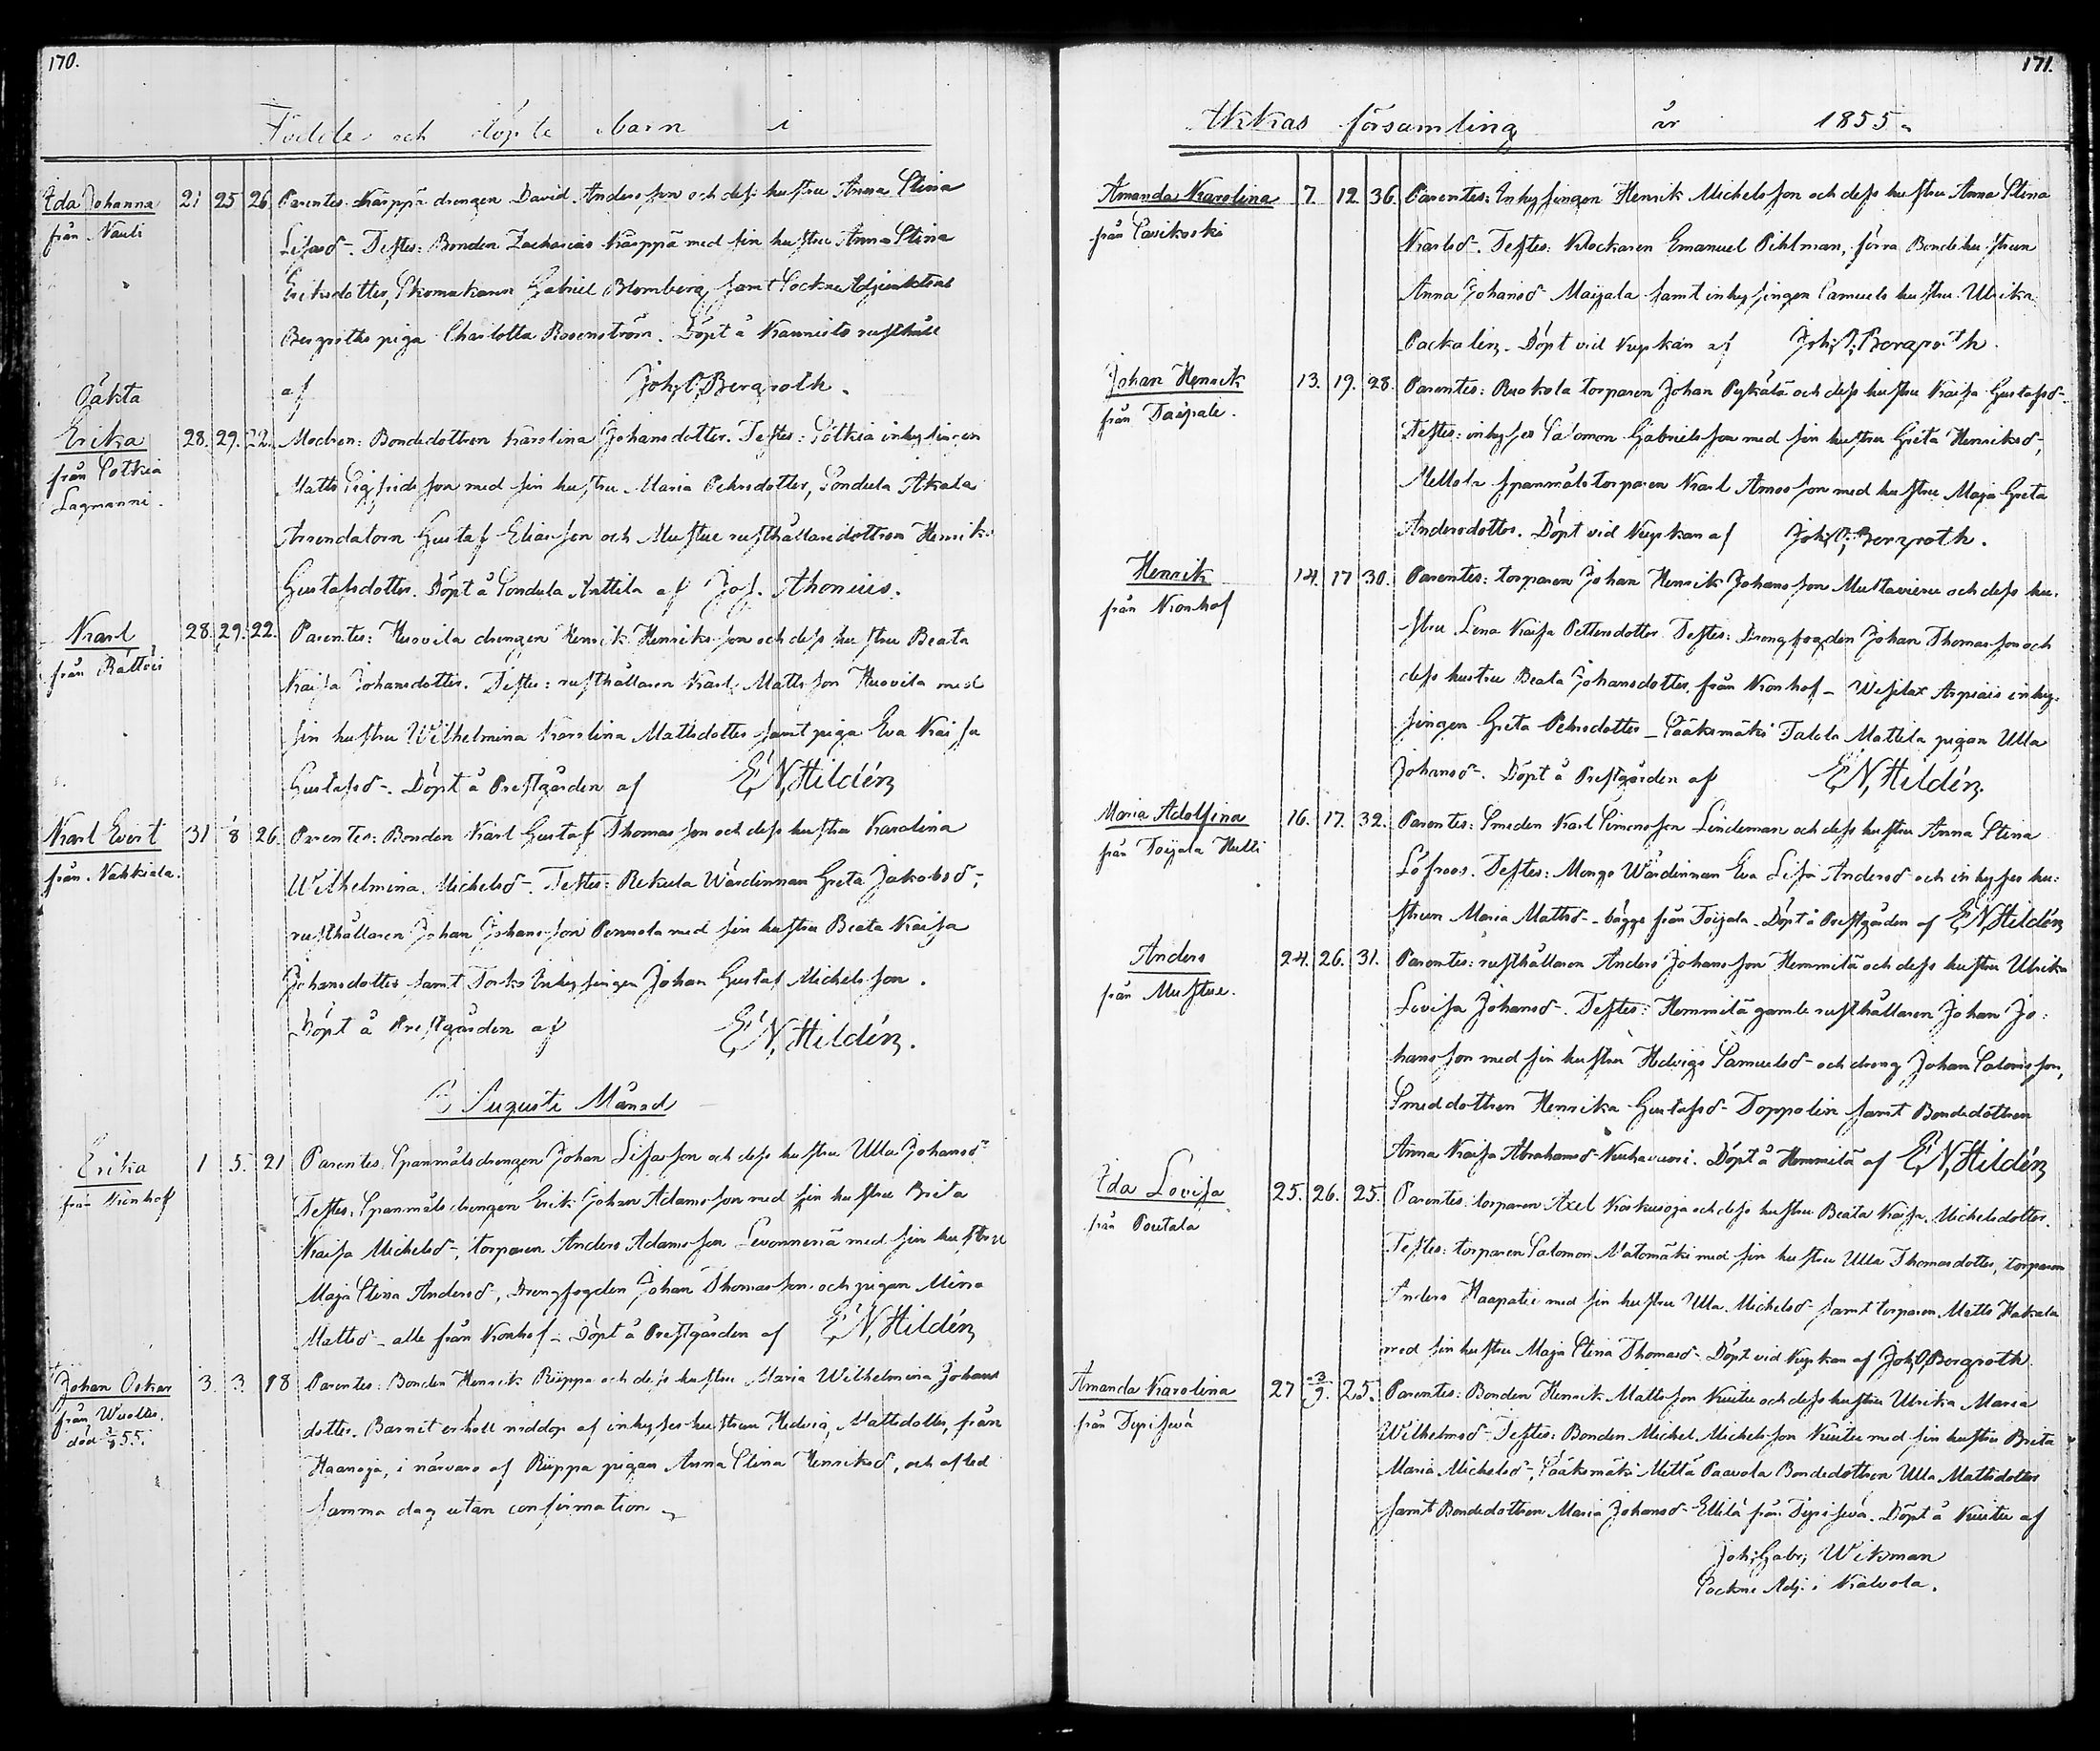 170.
Födde och döpte barn i
Ida Johanna 21 25 26 Parentes: Kärppä drengen David Andersson och dess hustru Anna Stina
från Nauli Lisasd-. Testes: Bonden Zacharias Kärppä med sin hustru Anna Stina
Eriksdotter, Skomakaren Gabriel Blomberg, samt Sockne Adjunkten
Bergroths piga Charlotta Rosenström. Döpt å Kannisto rusthåll
af Joh. O. Bergroth.
Oäkta
Erika 28. 29. 22. Modren: Bondedottren Karolina Johansdotter. Testes: Sotkia inhysingen
från Sotkia Matts Sigfridsson med sin hustru Maria Pehrsdotter, Sondula Akala
Lagmanni. Arrendatorn Gustaf Eliasson och Mustue rusthållaredottren Henrika
Gustafsdotter. Döpt å Sondula Anttila af Jos. Ahonius.
Karl 28. 29. 22. Parentes: Huovila drengen Henrik Henriksson och dess hustru Beata
från Rättöi Kaisa Johansdotter. Testes: rusthållaren Karl Mattsson Huovila med
sin hustru Wilhelmina Karolina Mattsdotter samt piga Eva Kaisa
Gustafsd-. Döpt å Prestgården af E. N. Hildén
Karl Evert 31 8 26. Parentes: Bonden Karl Gustaf Thomasson och dess hustru Karolina
från Nahkiala. Wilhelmina Michelsd-. Testes: Rekula Wärdinnan Greta Jakobsd-,
rusthållaren Johan Johansson Pennola med sin hustru Beata Kaisa
Johansdotter samt Torko Inhysingen Johan Gustaf Michelsson.
Döpt å Prestgården af E. N. Hildén.
Augusti Månad
Erika 1 5. 21 Parentes: Spanmålsdrengen Johan Lisasson och dess hustru Ulla Johansd-
från Kronhof Testes: Spanmålsdrengen Erik Johan Adamsson med sin hustru Brita
Kaisa Michelsd-, torparen Anders Adamsson Levonnenä med sin hustru
Maja Stina Andersd-, Drengfogden Johan Thomasson och pigan Mina
Mattsd- alla från Kronhof - Döpt å Prestgården af E. N. Hildén
Johan Oskar 3. 3. 18 Parentes: Bonden Henrik Riippa och dess hustru Maria Wilhelmina Johans
från Wuolles. dotter. Barnet erhöll nöddop af inhyses hustrun Hedvig Mattsdotter, från
död 3/8 55. Haanoja, i närvaro af Riippa pigan Anna Stina Henriksd-, och afled
samma dag utan confirmation
171.
Akkas församling år 1855.
Amanda Karolina 7. 12. 36. Parentes: Inhysingen Henrik Michelsson och dess hustru Anna Stina
från Savikoski Karlsd-. Testes: Klockaren Emanuel Pihlman, förra Bondehustrun
Anna Johansd- Maijala samt inhysingen Samuels hustru Ulrika
Packalin. Döpt vid Kyrkan af Joh. O. Bergroth.
Johan Henrik 13. 19. 28. Parentes: Ruokola torparen Johan Pykälä och dess hustru Kaisa Gustafsd-
från Taipale. Testes: inhyses Salomon Gabrielsson med sin hustru Greta Henriksd-,
Mellola spanmålstorparen Karl Amosson med hustru Maja Greta
Andersdotter. Döpt vid Kyrkan af Joh. O. Bergroth.
Henrik 14. 17 30. Parentes: torparen Johan Henrik Johansson Mustavieru och dess hu-
från Kronhof stru Lena Kaisa Pettersdotter. Testes: Drengfogden Johan Thomasson och
dess hustru Beata Johansdotter, från Kronhof - Wesilax Arpiais inhy-
singen Greta Pehrsdotter - Sääksmäki Talola Mattila pigan Ulla
Johansd-. Döpt å Prestgården af E. N. Hildén.
Maria Adolfina 16. 17. 32. Parentes: Smeden Karl Simonsson Lindeman och dess hustru Anna Stina
från Toijala Hulli Löfroos. Testes: Mongo Wärdinnan Eva Lisa Andersd- och inhyses hu-
strun Maria Mattsd- bägge från Toijala. Döpt å Prestgården af E. N. Hildén
Anders 24. 26. 31. Parentes: rusthållaren Anders Johansson Hemmilä och dess hustru Ulrika
från Mustue. Lovisa Johansd-. Testes: Hemmilä gamle rusthållaren Johan Jo-
hansson med sin hustru Hedvig Samuelsd- och dreng Johan Salomsson,
Smeddottren Henrika Gustafsd- Toppolin samt Bondedottren
Anna Kaisa Abrahamsd- Kuhavuori. Döpt å Hemmilä af E. N. Hildén
Ida Lovisa 25. 26. 25. Parentes: torparen Axel Koskusoja och dess hustru Beata Kaisa Michelsdotter.
från Poutala Testes: torparen Salomon Matomäki med sin hustru Ulla Thomasdotter, torparen
Anders Haapatie med sin hustru Ulla Michelsd- samt torparen Matts Hakala
med sin hustru Maja Stina Thomasd- Döpt vid Kyrkan af Joh. O. Bergroth.
Amanda Karolina 27 3/9. 25. Parentes: Bonden Henrik Mattsson Kuitu och dess hustru Ulrika Maria
från Terisevä Wilhelmsd-. Testes: Bonden Michel Michelsson Kuitu med sin hustru Brita
Maria Michelsd-, Sääksmäki Mettä Paavola Bondedottren Ulla Mattsdotter
samt Bondedottren Maria Johansd- Ellilä från Terisevä. Döpt å Kuitu af
Joh. Gabr. Wikman
Sockne Adj. i Kalvola.